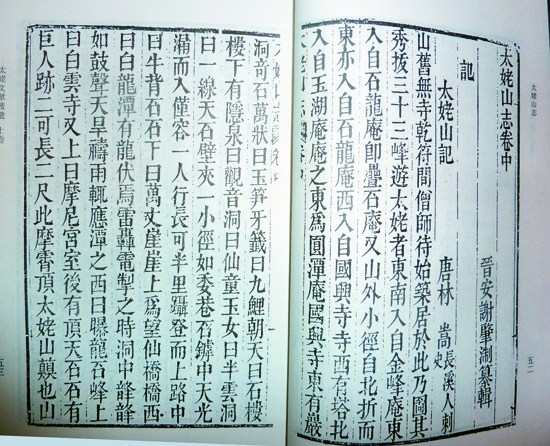 太姥山志
五二
太姥山志卷中
晉安謝肇淛纂輯
記
太姥山記
唐林 嵩長溪人刺史
山舊無寺乾符間僧師待始築居於此乃圖其
秀拔三十三峰遊太姥者東南入自金峰庵東
入自石龍庵即疊石庵又山外小徑自北折而
東亦入自石龍庵西入自國興寺寺西有塔北
入自玉湖庵庵之東爲圓潭庵國興寺東有巖
洞奇石萬狀曰玉笋牙籤曰九鯉朝天曰石樓
樓下有隱泉曰觀音洞曰仙童玉女曰半雲洞
曰一線天石壁夾一小徑如委巷石罅中天光
漏而入僅容一人行長可半里躡登而上路中
曰牛背石石下曰萬丈崖崖上爲望仙橋橋西
曰白龍潭有龍伏焉雷轟電掣之時洞中韸韸
如鼓聲天旱禱雨輒應潭之西曰曝龍石峰上
曰白雲寺又上曰摩尼宮室後有頂天石石有
巨人跡二可長二尺此摩霄頂太姥山巔也山
五三